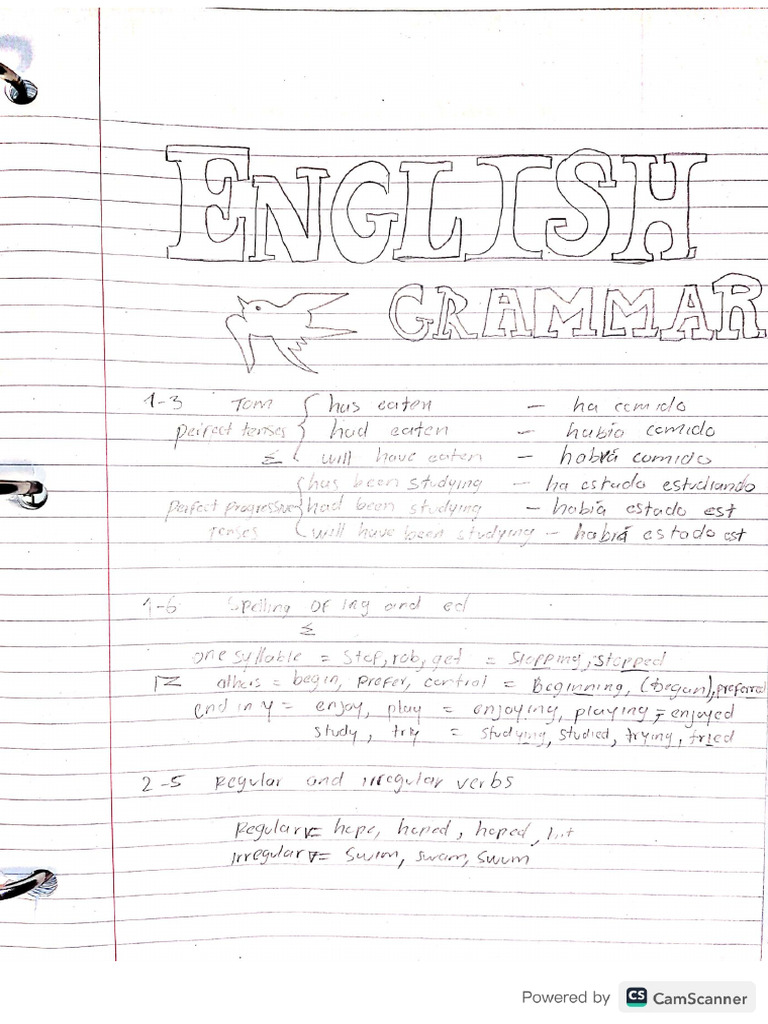 ENGLISH
GRAMMAR
1-3 Tom { has eaten – ha comido
perfect tenses { had eaten – había comido
Σ { will have eaten – habrá comido
{ has been studying – ha estado estudiando
perfect progressive { had been studying – había estado est
tenses { will have been studying – habrá estado est
1-6 Spelling of ing and ed
Σ
one syllable = stop, rob, get = stopping, stopped
others = begin, prefer, control = Beginning, (began), preferred
end in y = enjoy, play = enjoying, playing, enjoyed
study, try = studying, studied, trying, tried
2-5 Regular and irregular verbs
Regular v= hope, hoped, hoped,
irregular v= Swim, swam, swum
Powered by CS CamScanner